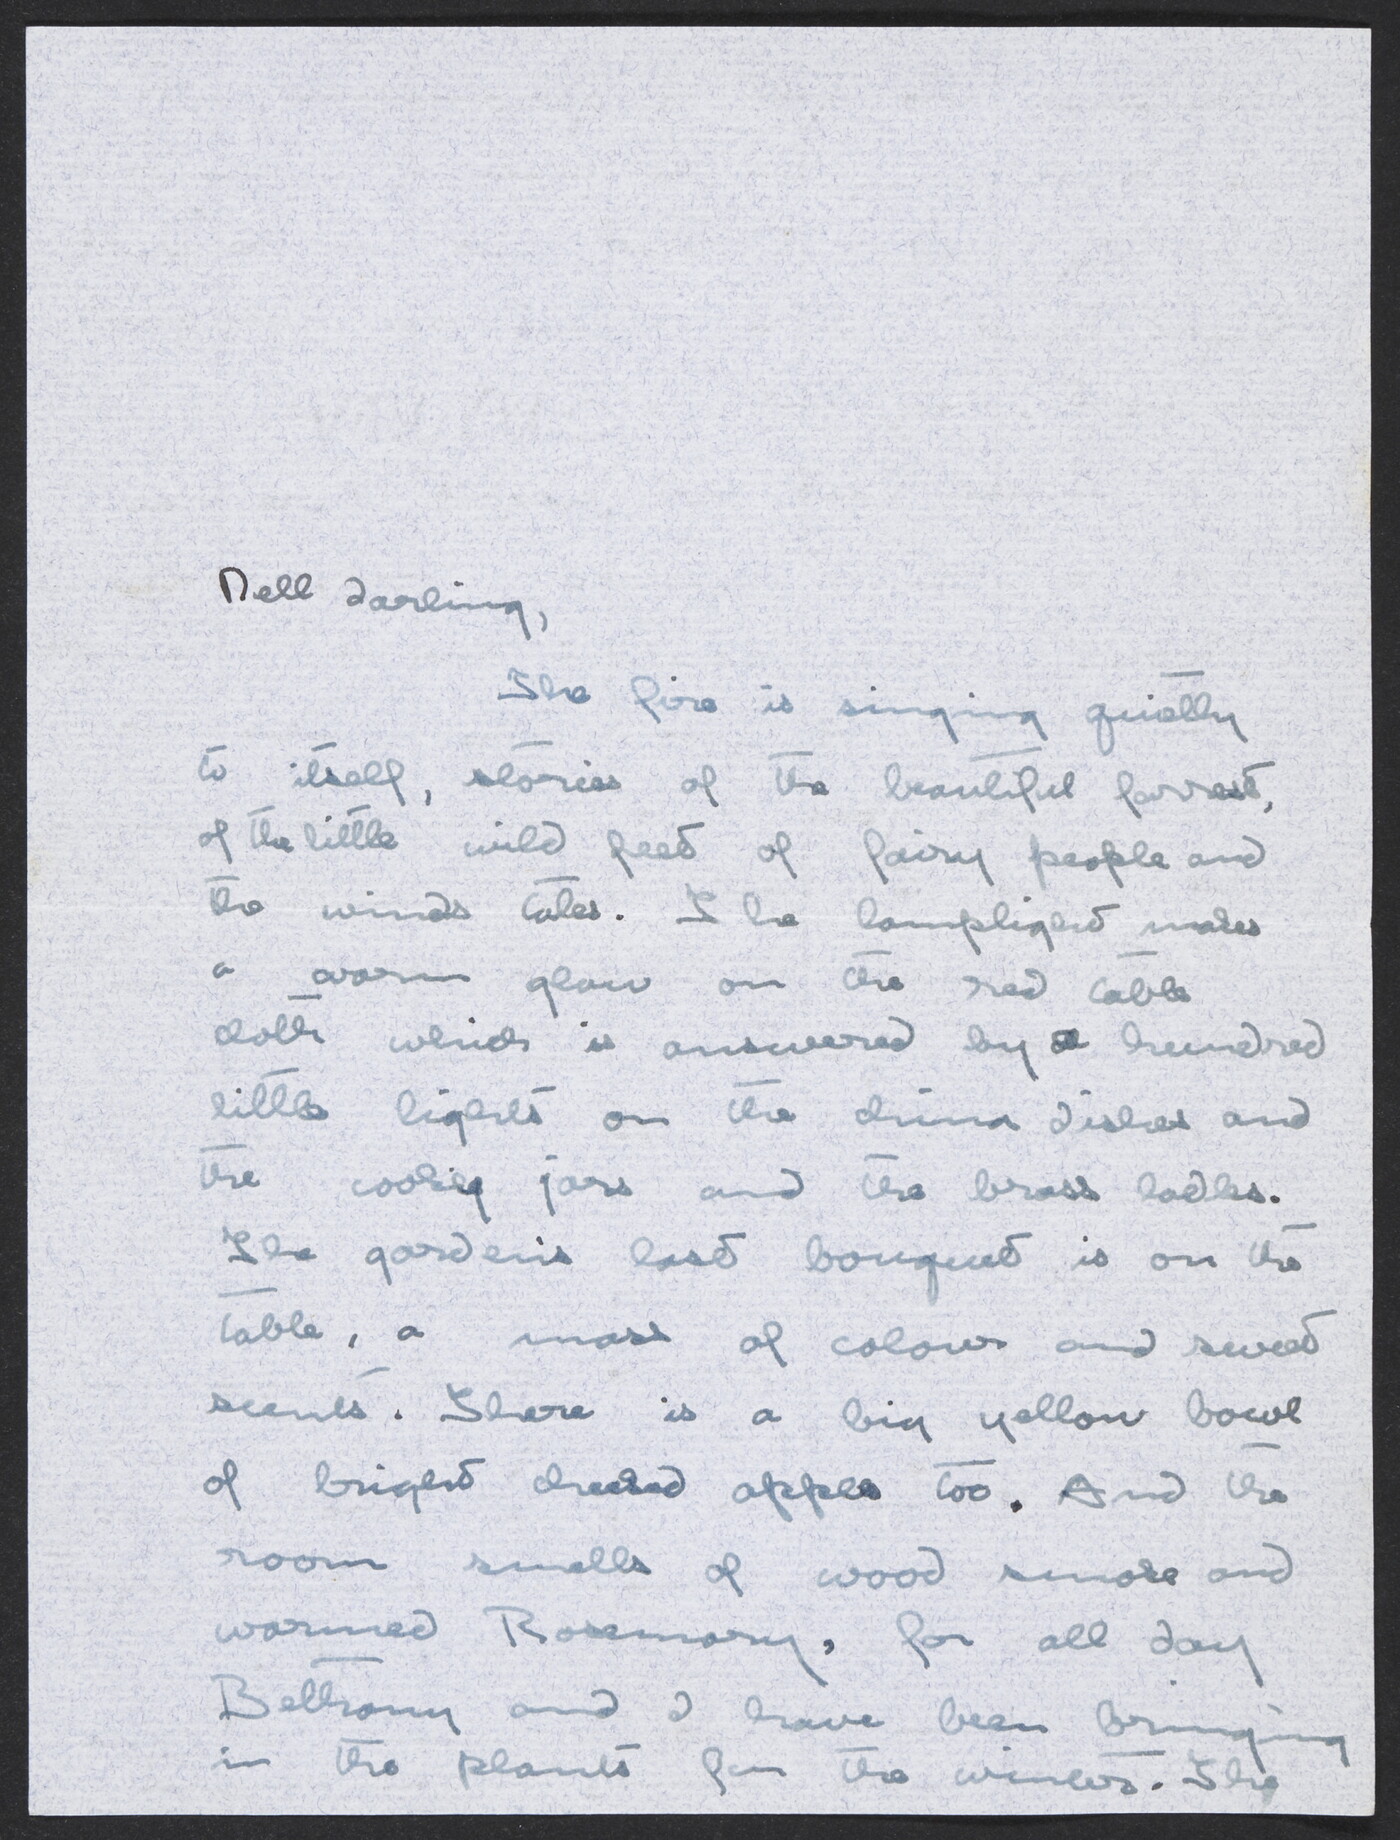 Nell darling,
The fire is singing quietly
to itself, stories of the beautiful forrest,
of the little wild feet of fairy people and
the winds tales. The lamplight makes
a warm glow on the red table
cloth which is answered by a hundred
little lights on the china dishes and
the cooky jars and the brass ladles.
The gardens last bouquet is on the
table, a mass of colour and sweet
scents. There is a big yellow bowl
of bright cheeked apples too. And the
room smells of wood smoke and
warmed Rosemary, for all day
Bethany and I have been bringing
in the plants for the winter. The